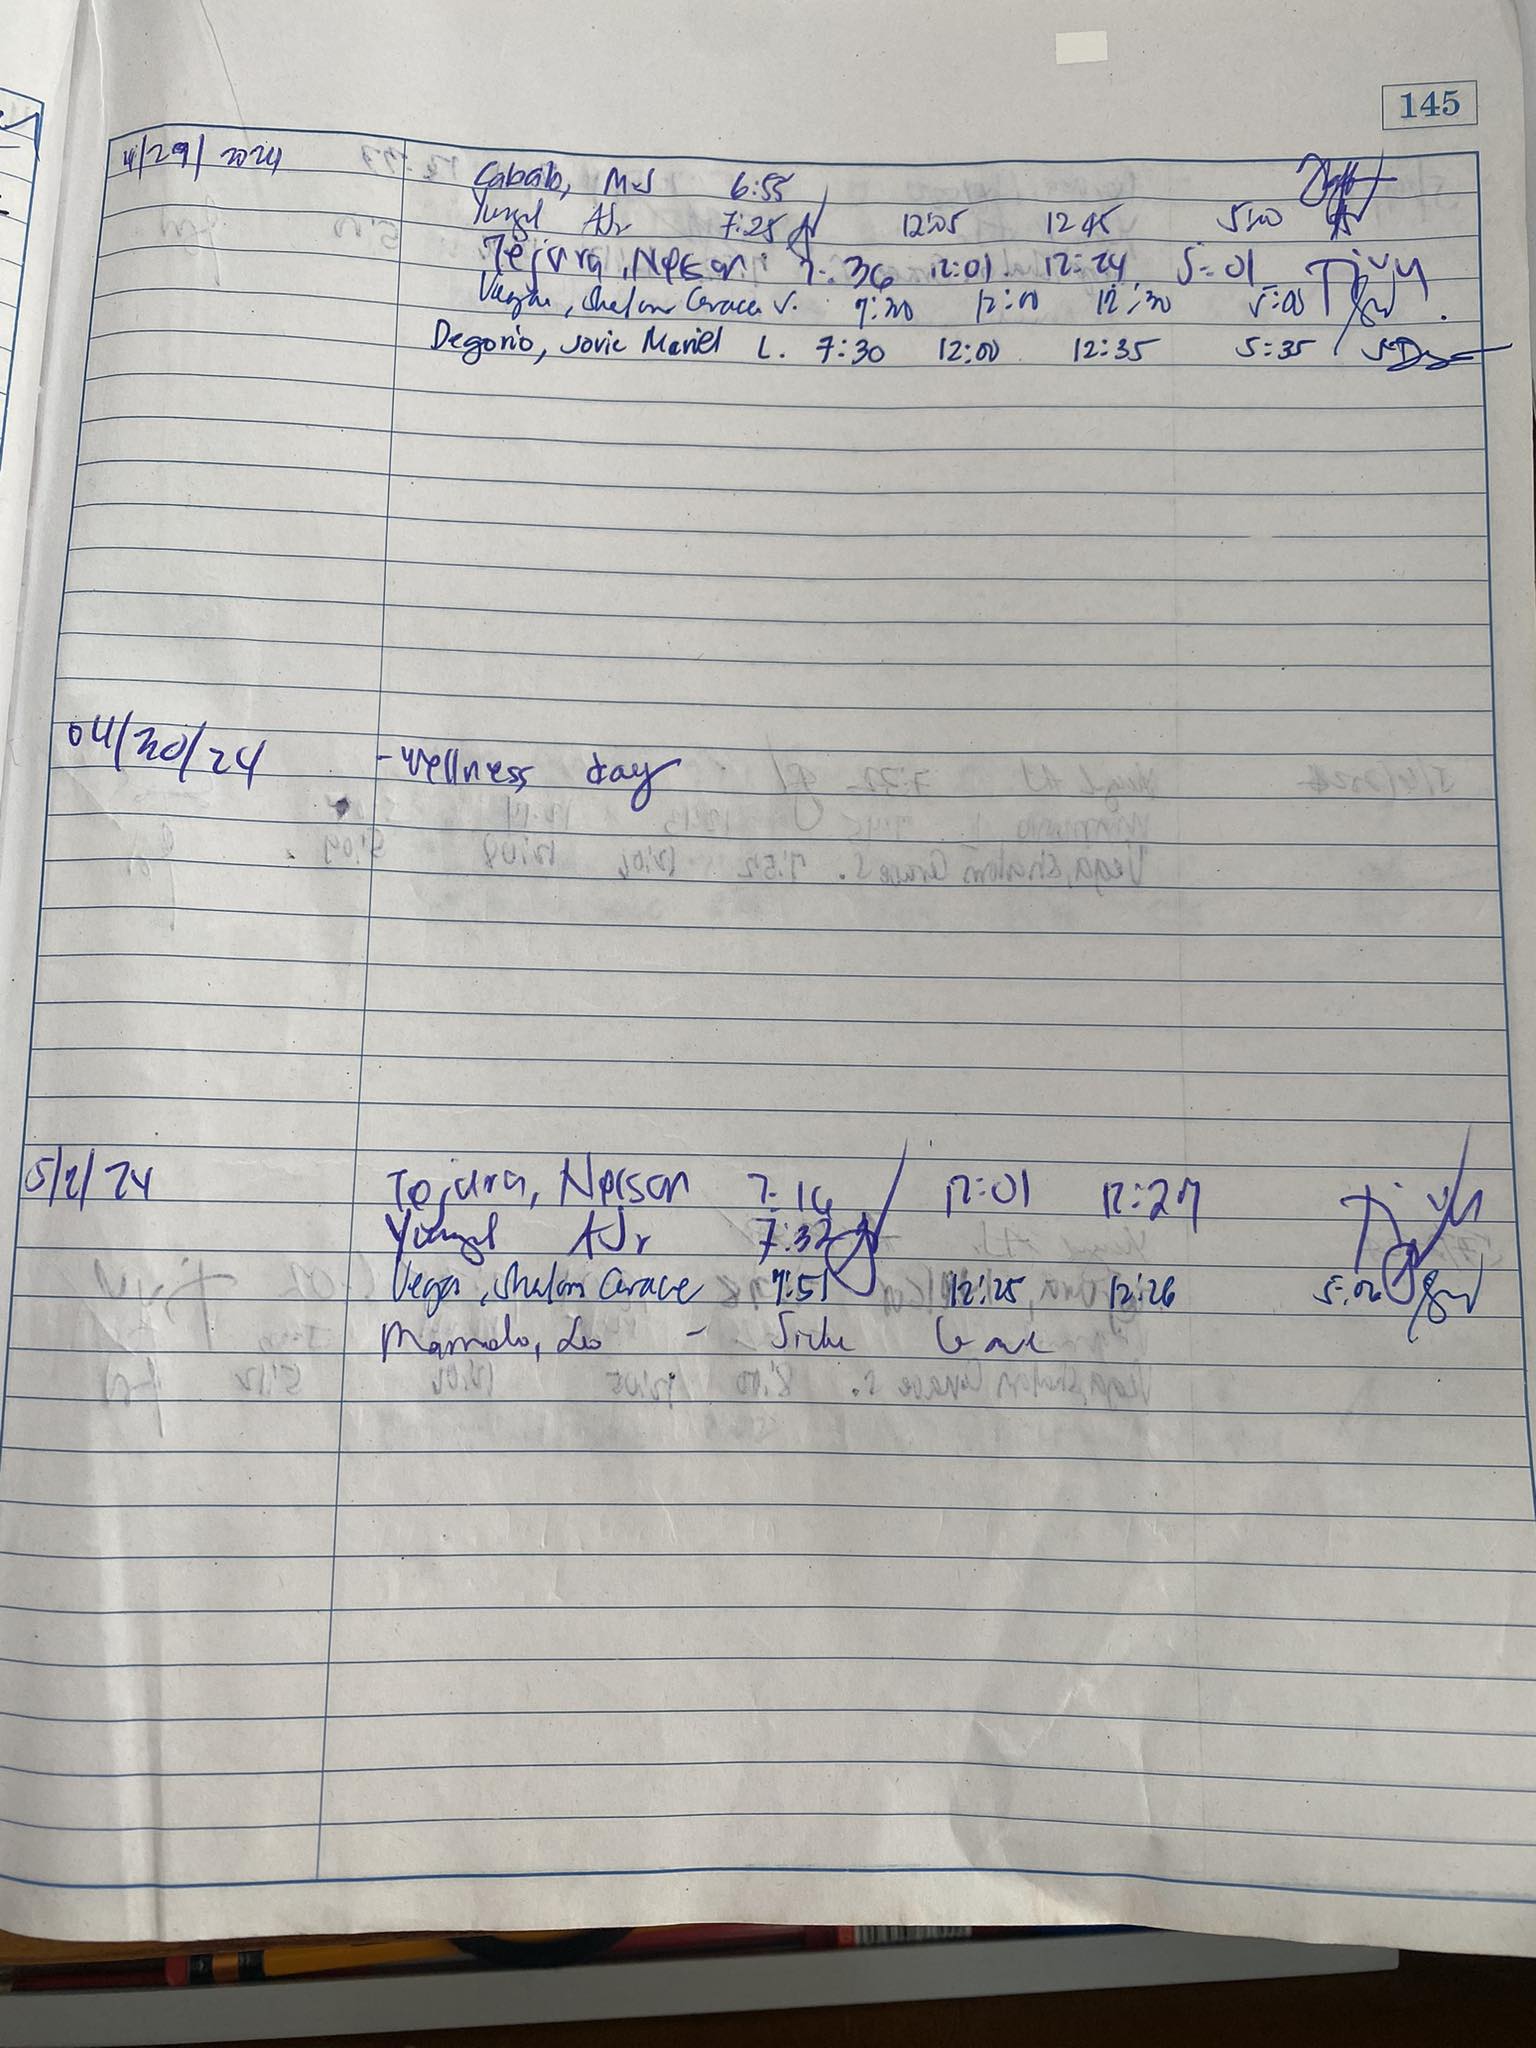 145
4/29/2024
Cabalo, 6:55
AJr 7:25 12:05 12 45 5:00
Tejura, Nelson 7:36 12:01 12:24 5:01
Vega, Shalom Grace S. 7:30 12:00 12:30 5:00
Degorio, Jovic Mariel L. 7:30 12:00 12:35 5:35
04/30/24 - wellness day
5/2/24 Tejura, Nelson 7:16 12:01 12:27
AJr 7:32
Vega, Shalom Grace 7:51 12:25 12:26 5:02
Leo - Sick Leave